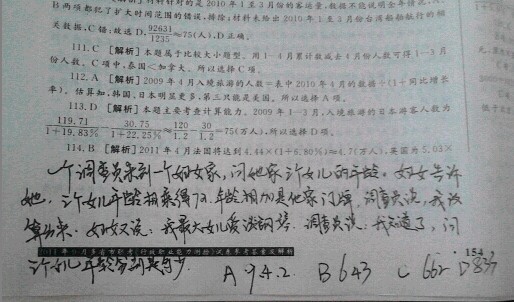 B两项都犯了扩大时间范围的错误,排除;材料未给出2010年1至3月份台湾船舶航行的相
关数据,C错;故选D。92631/1235≈75(人),D正确。
111.C [解析]本题属于比较大小题型。用1—4月累计数减去4月份人数可得1—3月
份人数。C项中,泰国<加拿大。所以选择C项。
112.A [解析]2009年4月入境旅游的人数=表中2010年4月的数据÷(1+同比增长
率)。估算知,韩国、日本明显更多,第三只能是美国。所以选择A项。
113.D [解析]本题主要考查计算能力。2009年1—3月,入境旅游的日本游客人数为
119.71/1+19.83%-30.75/1+22.25%≈120/1.2-30/1.2=75(万人),所以选择D项。
114.B [解析]2011年4月法国将达到4.44×(1+5.80%)≈4.7(万人),英国为5.03×
一个调查员来到一个妇女家,问她家三个女儿的年龄。妇女告诉
她,三个女儿年龄相乘得72,年龄相加是他家门牌,调查员说,我没
算出来。妇女又说:我最大女儿爱谈钢琴。调查员说:我知道了,问
2011年 月多省市联考《行政职业能力测验》试卷参考答案及解析 154
三个女儿年龄分别是多少 A 94.2 B 643 C 662 D 833